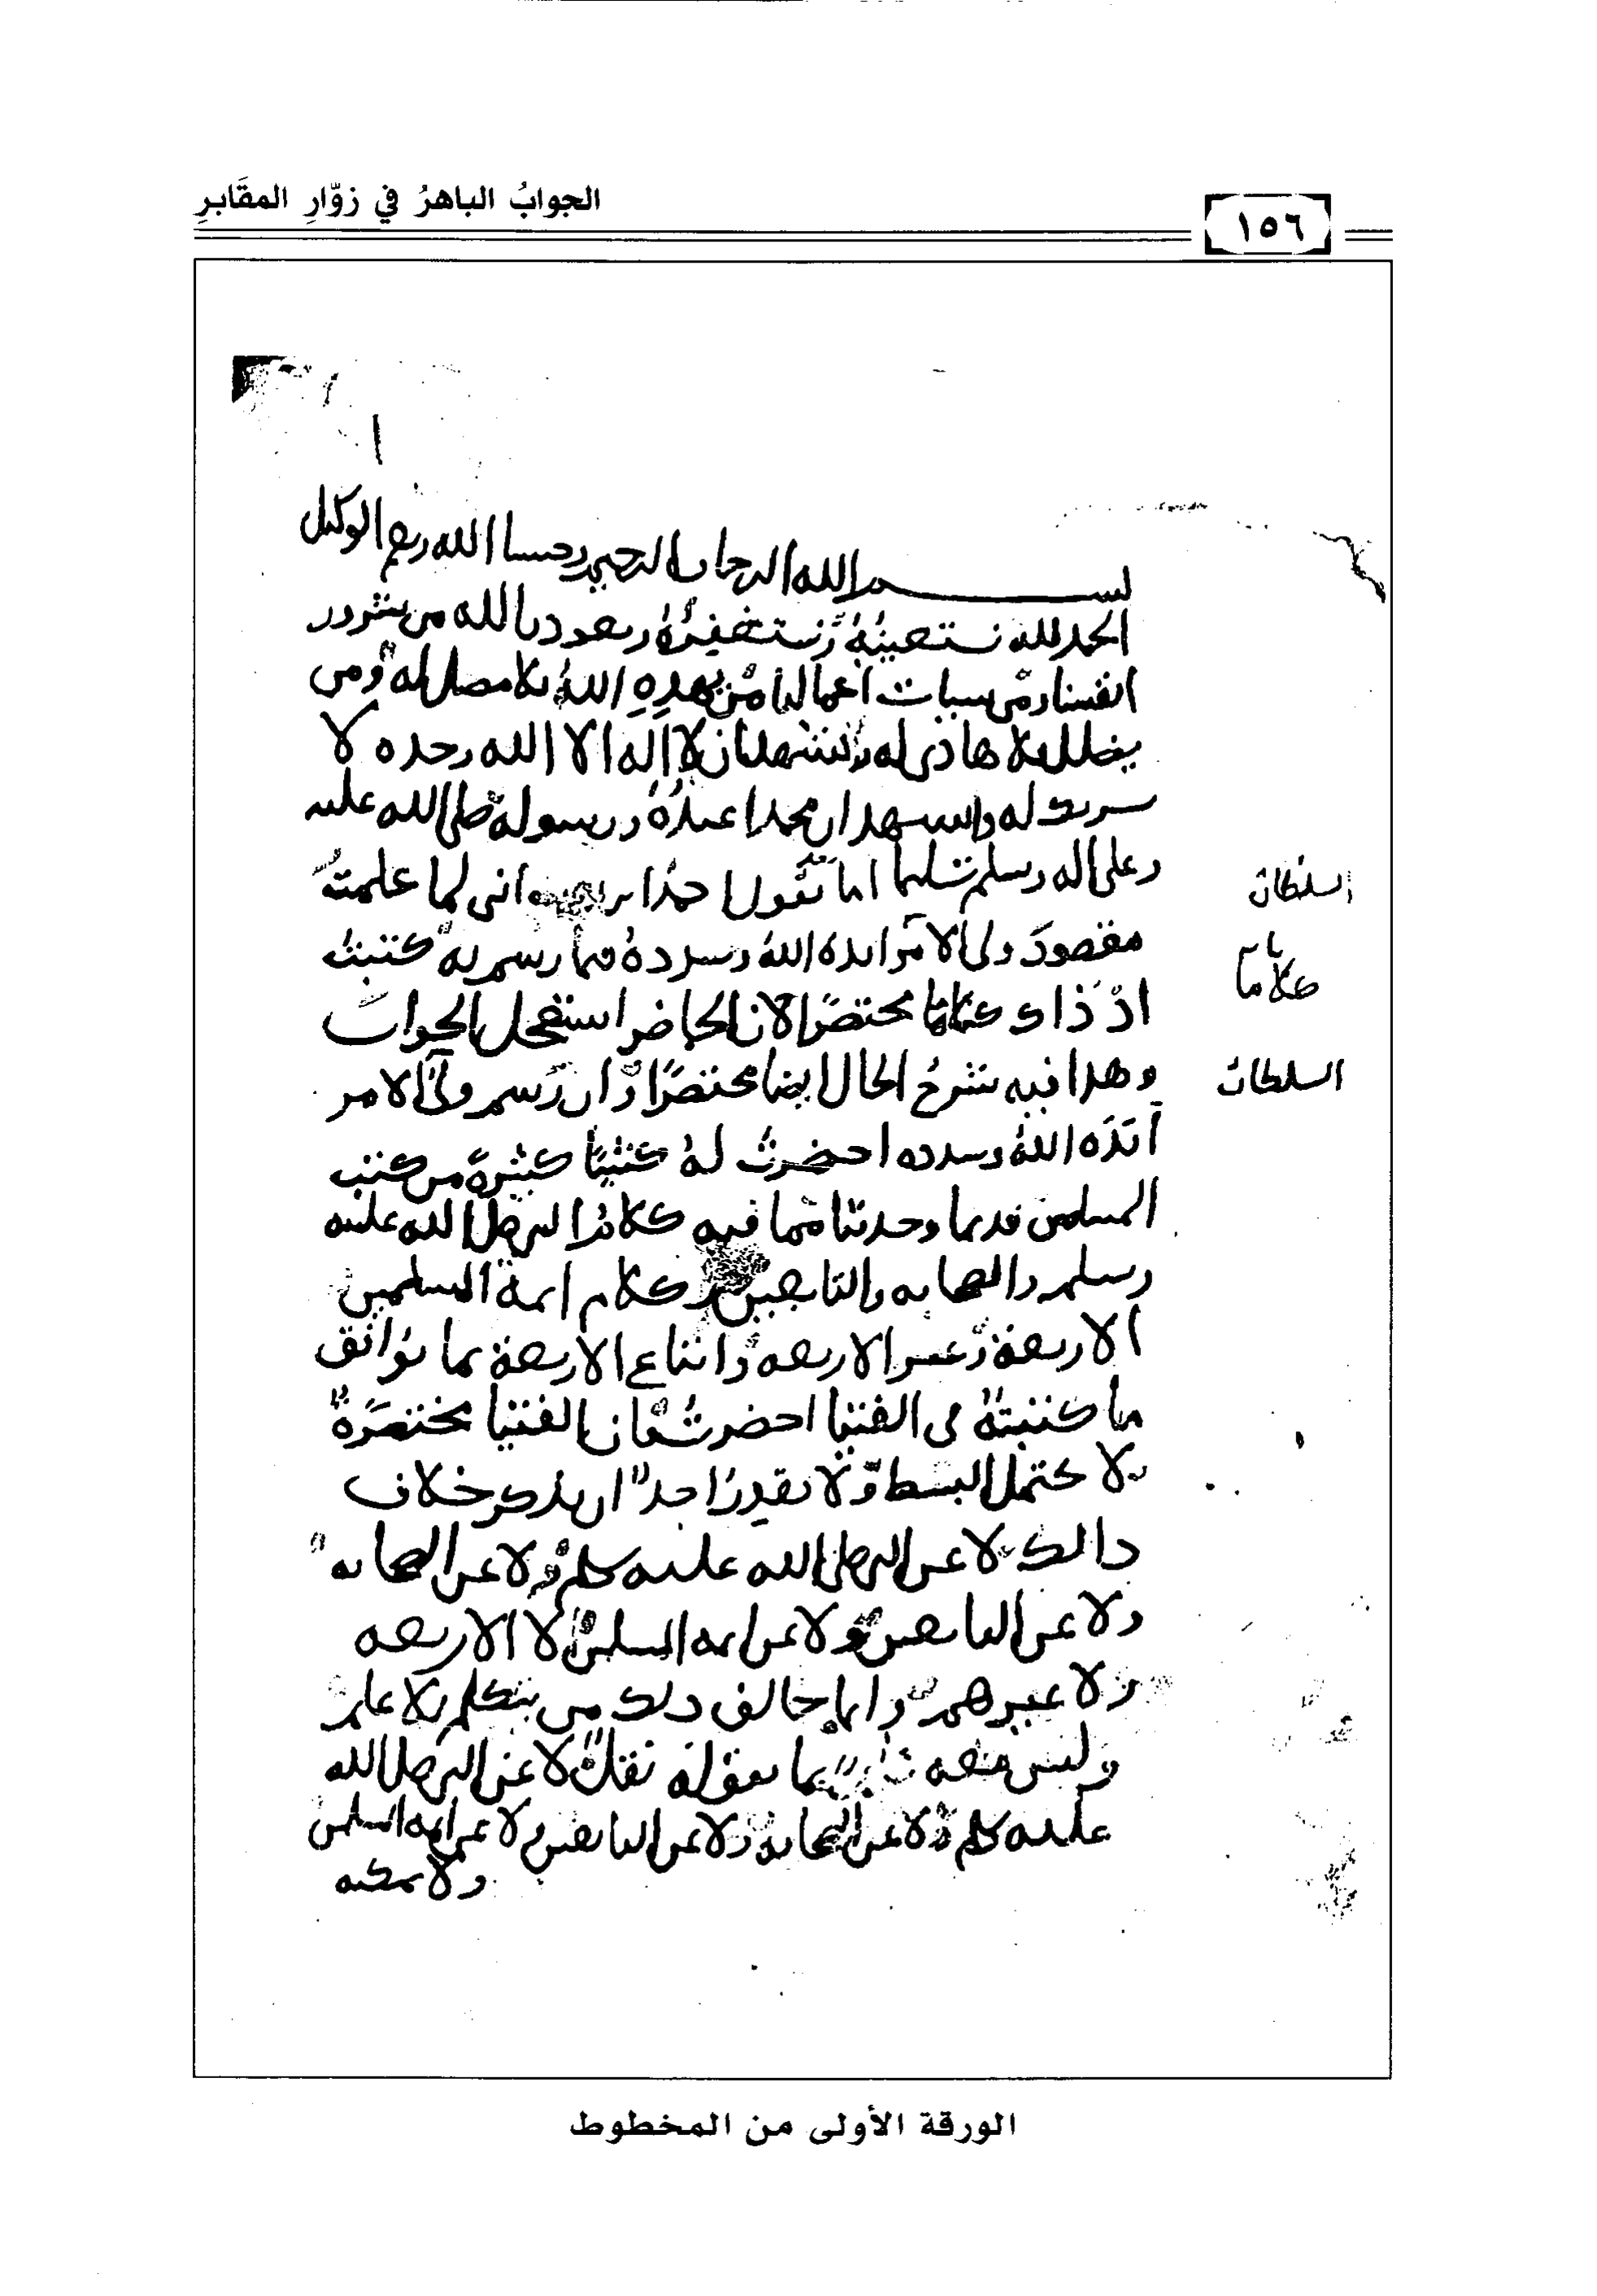 الجوابُ الباهرُ في زوّارِ المقَابرِ
١٥٦
بسم الله الرحمان الرحيم وحسبنا الله ونعم الوكيل
الحمد لله نستعينهُ ونستغفرُهُ ونعوذ بالله من شرور
انفسنا ومن سيات اعمالنا من يهدِهِ اللهُ فلا مضل له ومن
يضلل فلا هاذى له ونشهد ان لا اله الا الله وحده لا
شريك له ونشهد ان محمدا عبدُهُ ورسوله صلى الله عليه
وعلى اله وسلم تسليما اما نقول انى لما علمتُ
السلطان
مقصودَ ولى الامر ايده اللهُ وسدده فيما رسم به كتبتُ
بام
كلاما
اذ ذاك كلاما مختصرًا لان الحاضر استعجل الجواب
وهذا فيه شرحُ الحال ايضا مختصرًا وان رَسم ولىّ الامر
السلطان
أيّدَه اللهُ وسدده احضرتُ لهُ كتبًا كثيرةً من كتب
المسلمين قديما وحديثا مما فيه كلام النبى صلى الله عليه
وسلم والصحابه والتابعين وكلام ايمة المسلمين
الاربعة وغير الاربعه واتباع الاربعة بما يُوافق
ما كتبتهُ فى الفتيا احضرتُ فان الفتيا مختصَرةٌ
لا تحتمل البسط ولا يقدِرُ احد ان يذكر خلاف
ذالك لا عن النبى صلى الله عليه وسلم ولا عن الصحابه
ولا عن التابعين ولا عن ايمه المسلمين لا الاربعه
ولا غيرهم وانما يخالف ذلك من يتكلم بلا علم
وليس معه بما يقوله نقل لا عن النبى صلى الله
عليه وسلم ولا عن الصحابه ولا عن التابعين ولا عن ايمه المسلمين
ولا يمكنه
الورقة الأولى من المخطوط